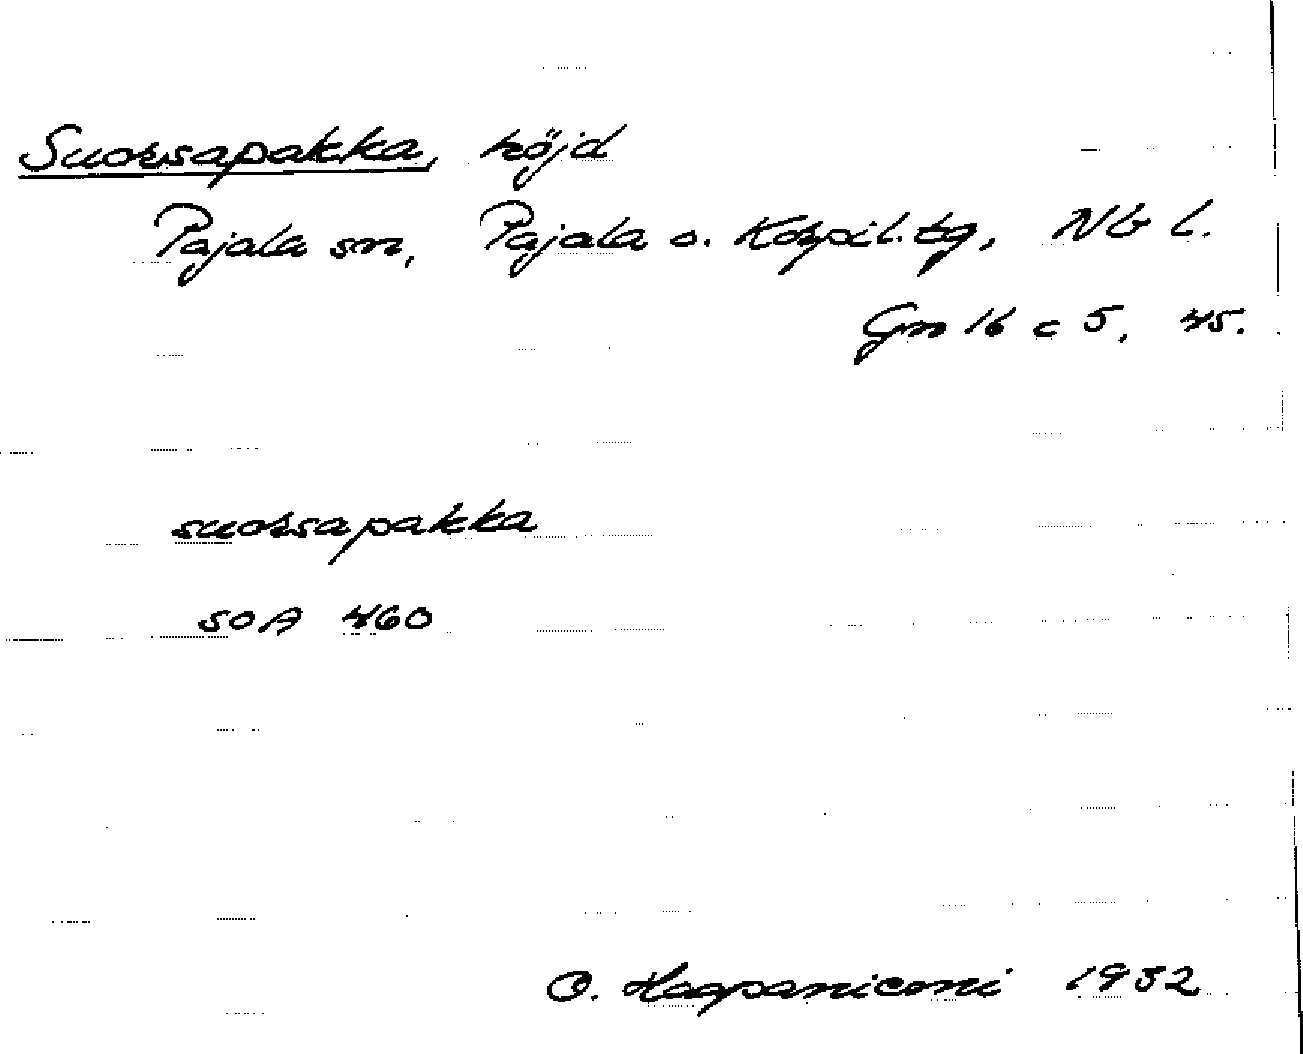 Suorsapakka, höjd
Pajala sn, Pajala o. Korpil. tg, Nb l.
Gm 16 c 5, 45.
suorsapakka
SOA 460
O. Haapaniemi 1932